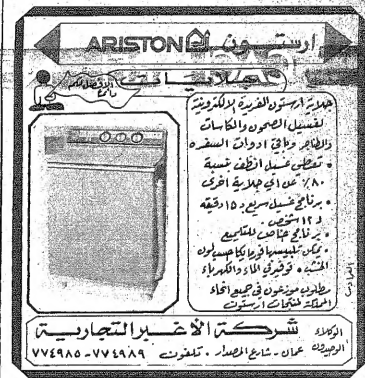 ارستون ARISTON
جلايات
الأفضل لكم
جلاية ارستون الفريدة الالكترونية
لغسيل الصحون والكاسات
والطناجر وباقي ادوات السفره
• تعطي غسيل انظف بنسبة
٨٠٪ عن أي جلاية أخرى
• برنامج غسيل سريع ١٥ دقيقة
لـ ١٢ شخص.
• برنامج خاص للتلميع
• يمكن تلبيسها فورمايكا حسب لون
الخشب • توفير في الماء والكهرباء
مطلوب موزعون في جميع انحاء
المملكة لمنتجات ارستون
الوكلاء الوحيدون شركة الأغبر التجارية
عمان - شارع المصدار • تلفون ٧٧٤٩٨٩ - ٧٧٤٩٨٥